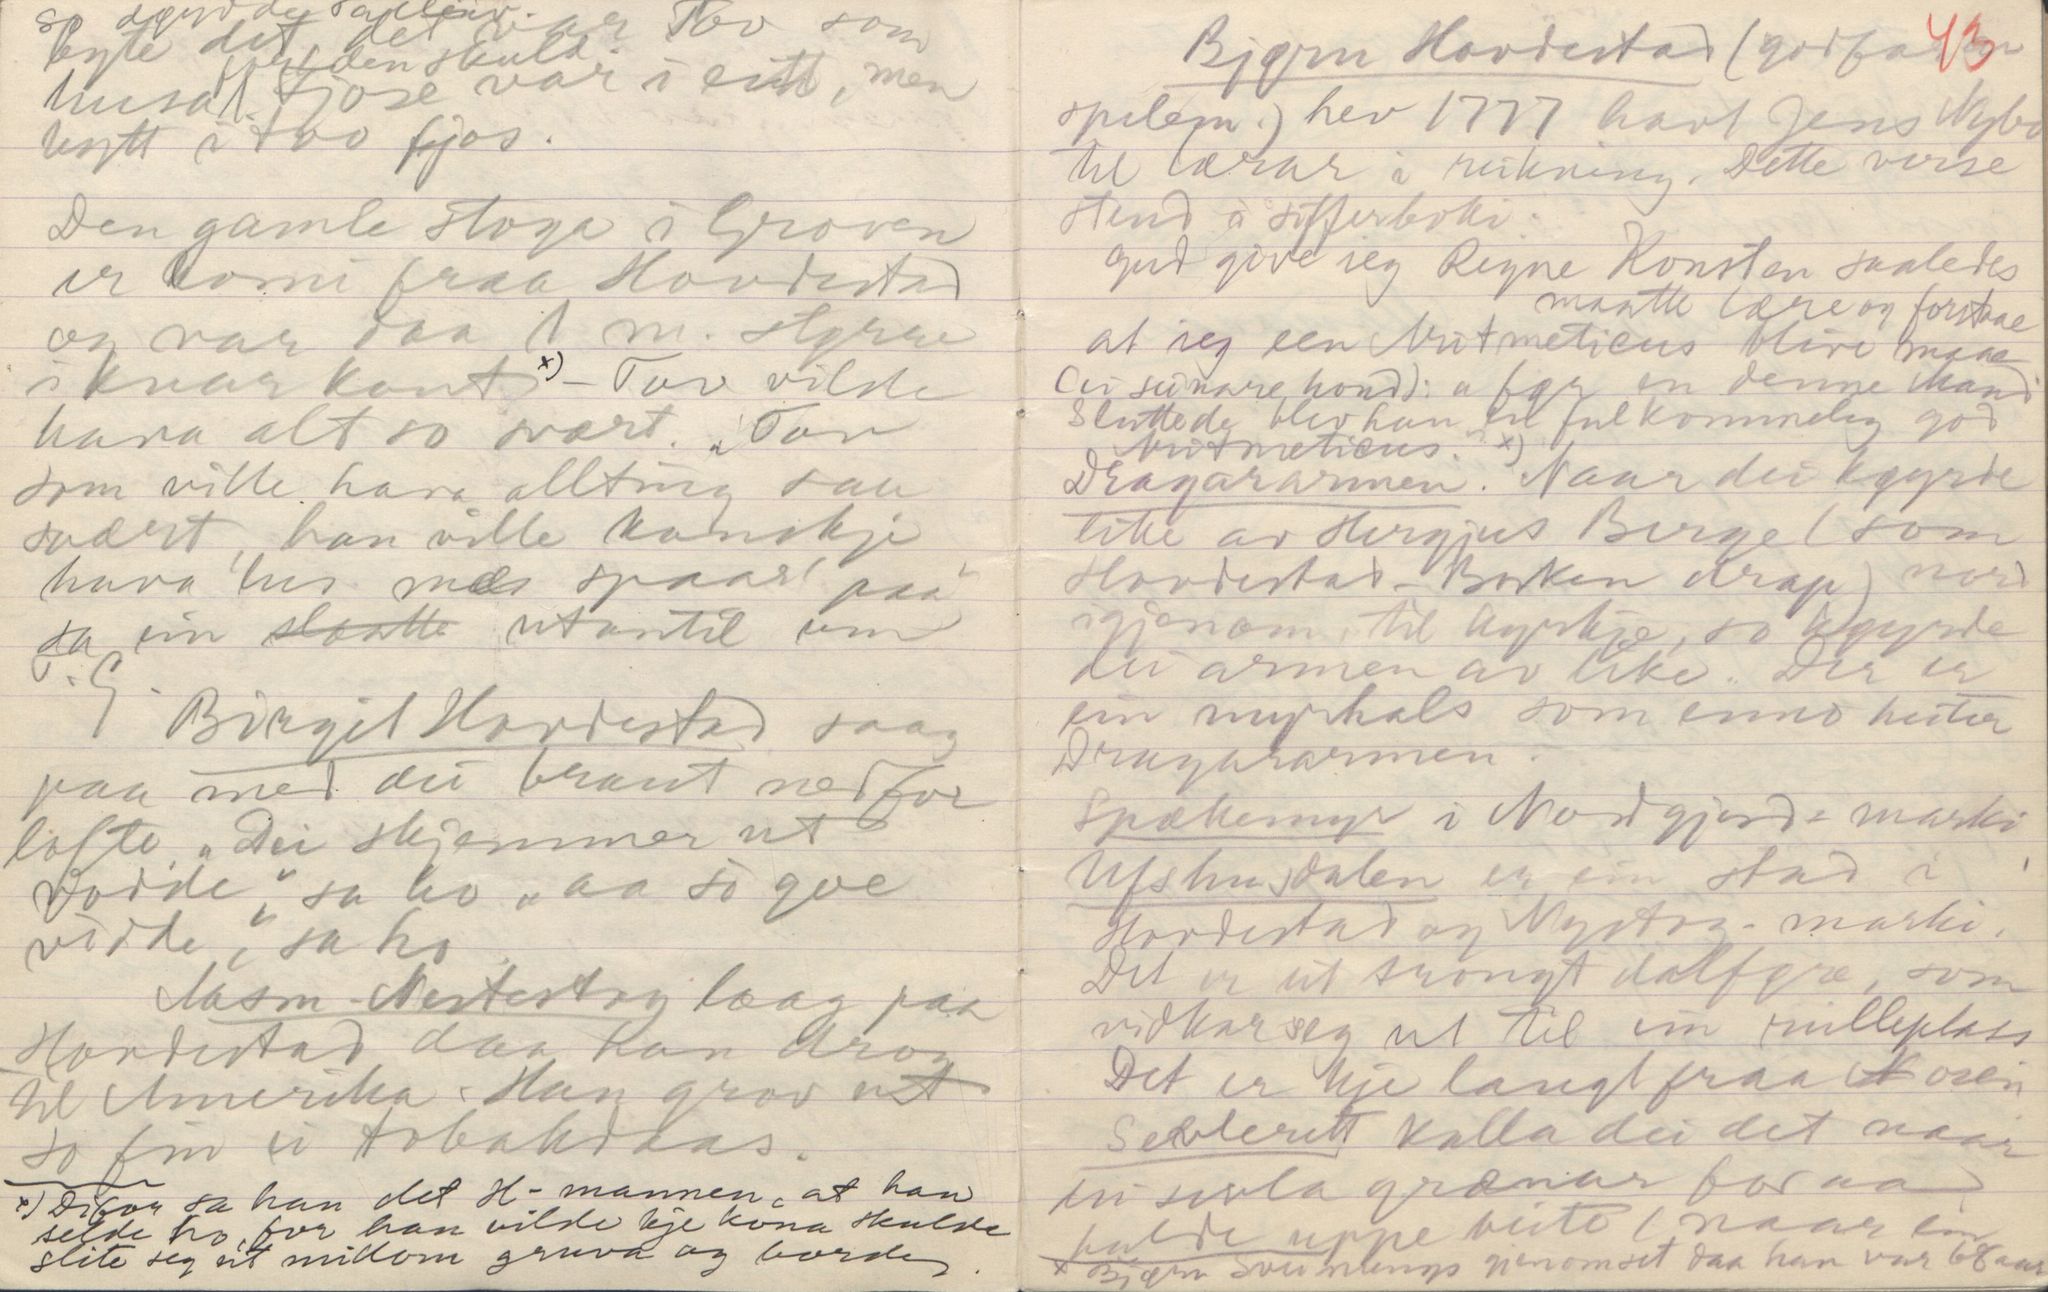 bytte det, det var Tov som
for den skuld.
husa. Fjose var i eitt, men
bytt i tvo fjos.
Den gamle stoga i Groven
er komi fraa Hovdestad
og var daa 1 m. styrre
i kvar kant x) - Tov vilde
hava alt so svært. "Tov
som ville hava allting saa
svært, han ville kanskje
hava hus med spaar paa"
sa ein slaatte utantil um
T. G.
Birgit Hovdestad saag
paa med dei braut ned for
lofte. "Dei skjemmer ut
vodde," sa ho "aa so goe
vidde," sa ho.
Aasm. Nestestog laag paa
Hovdestad daa han drog
til Amerika. Han grov ut
so fin ei tobakdaas.
x) Difor sa han det H-mannen, at han
selde ho, for han vilde kje kona skulde
slite seg ut millom gruva og borde.
43
Bjørn Hovdestad (godfa
spelem.) hev 1777 havt Jens Nybu
til lærar i rekning. Dette verse
stend i sifferboki:
Gud give ieg Regne Konsten saaledes
maatte lære og forstaae
at ieg een Aritmeticus blive maae
(ei seinare hond): a før en denne Mand
Sluttede blev han en fulkommelig god
Aritmeticus. x)
Dragararmen. Naar dei køyrde
like av Hergjus Berge (som
Hovdestad-Borken drap) nord
igjenom, til kyrkje, so køyrde
dei armen av like. Der er
ein myrhals som enno heiter
Dragararmen.
Spækemyr i Nordgjerd-marki
Ufshusdalen er ein stad i
Hovdestad og Nystog-marki.
Det er eit trongt dalføre, som
vidkar seg ut til ein rilleplass
Det er kje langt fraa Nosin
Selvlerett kalla dei det naar
ei suvla grænar for aa
halde uppe beite (naar ein
x Bjørn Sveinungs gjenomset daa han var 68 aar